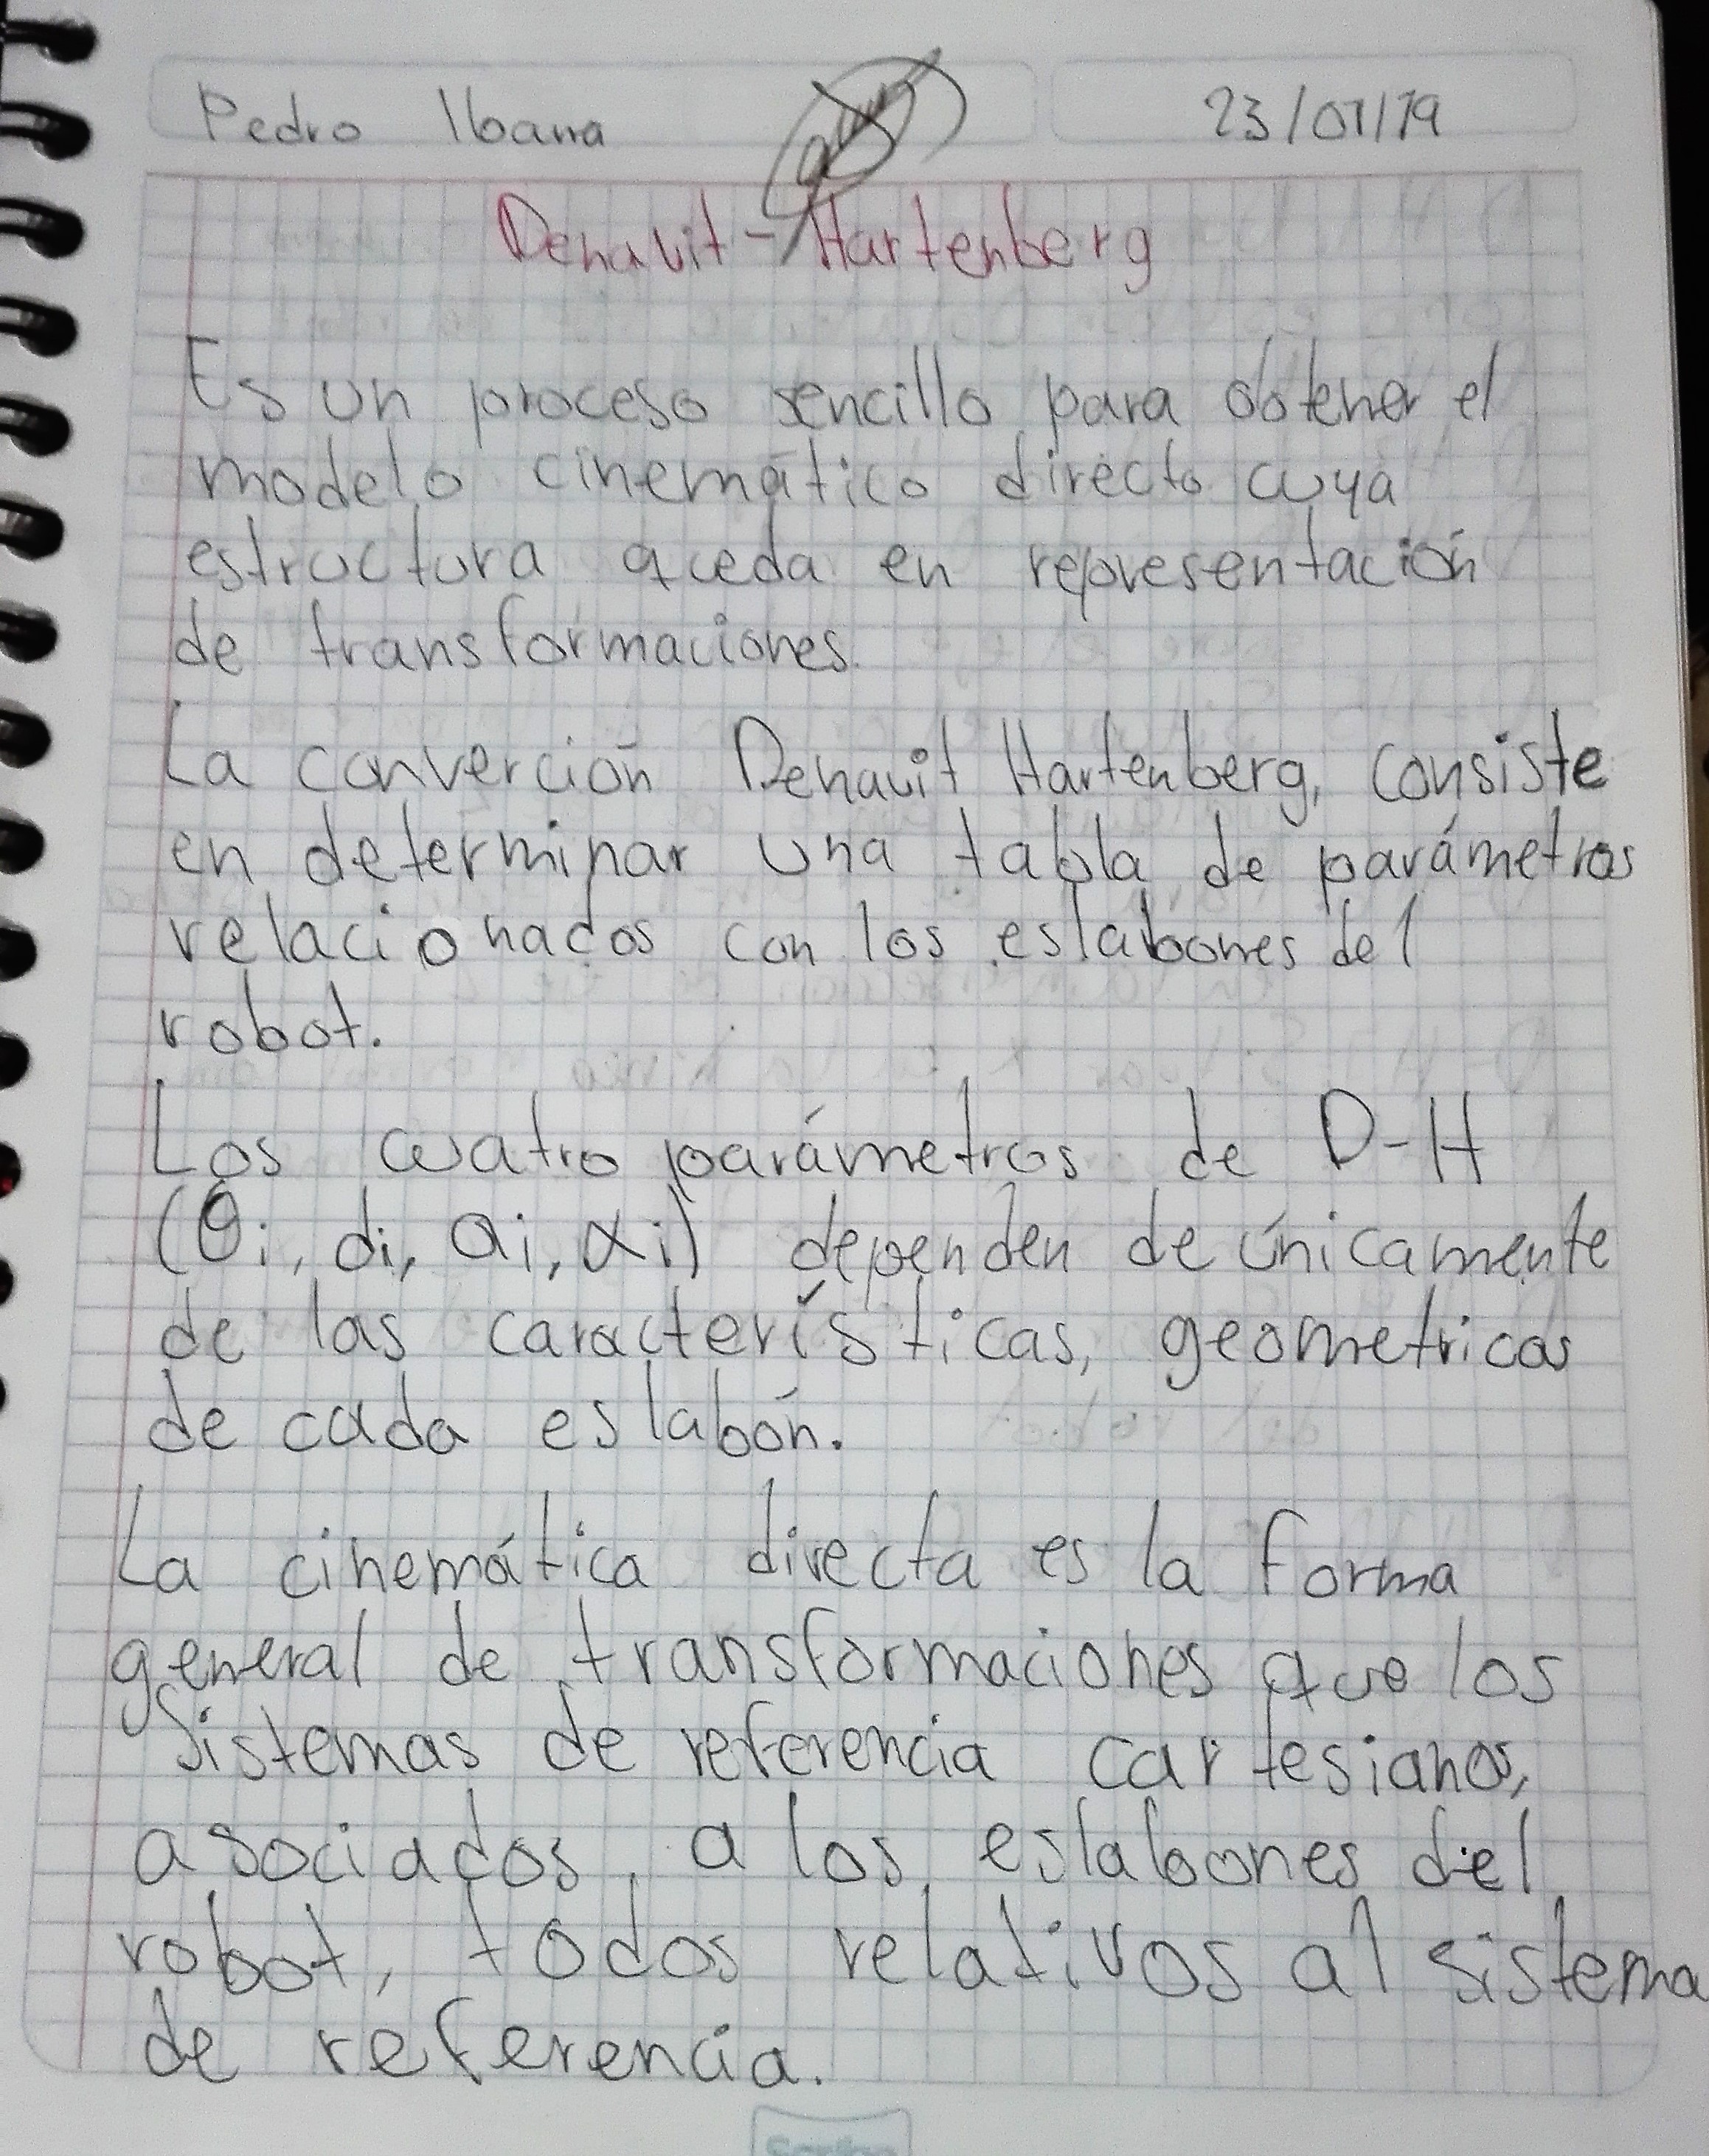 Pedro Ibarra
23/01/19
Denavit-Hartenberg
Es un proceso sencillo para obtener el
modelo cinemático directo cuya
estructura queda en representación
de transformaciones.
La converción Denavit Hartenberg, consiste
en determinar una tabla de parámetros
relacionados con los eslabones del
robot.
Los cuatro parámetros de D-H
(θi, di, ai, αi) dependen de únicamente
de las características, geometricas
de cada eslabón.
La cinemática directa es la forma
general de transformaciones que los
Sistemas de referencia cartesianos,
asociados, a los eslabones del
robot, todos relativos al sistema
de referencia.
Scribe